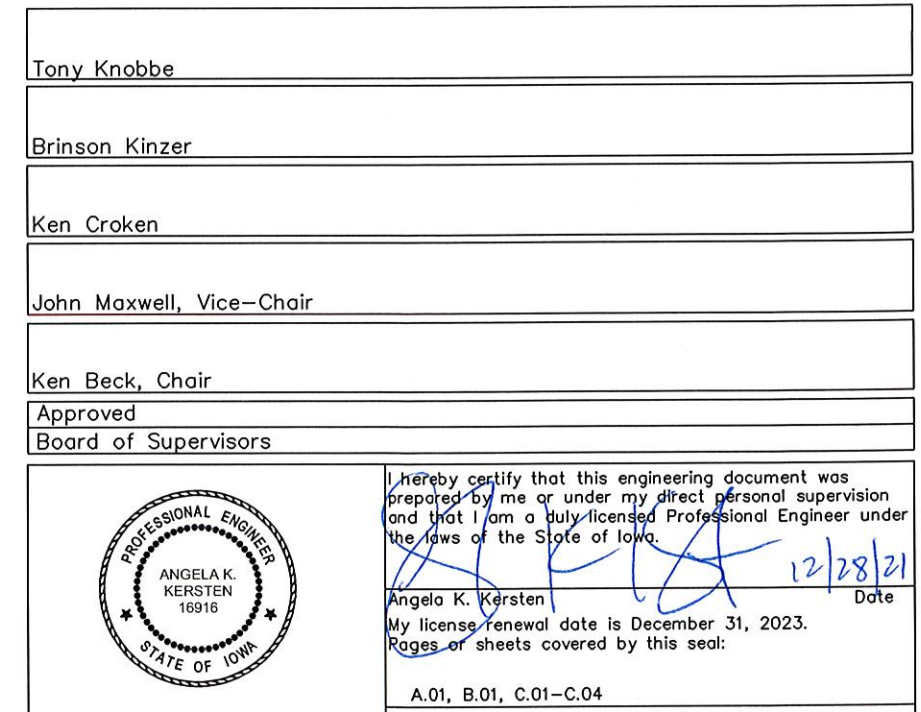 Tony Knobbe
Brinson Kinzer
Ken Croken
John Maxwell, Vice-Chair
Ken Beck, Chair
Approved
Board of Supervisors
PROFESSIONAL ENGINEER
ANGELA K.
KERSTEN
16916
STATE OF IOWA
I hereby certify that this engineering document was
prepared by me or under my direct personal supervision
and that I am a duly licensed Professional Engineer under
the laws of the State of Iowa.
12/28/21
Angela K. Kersten Date
My license renewal date is December 31, 2023.
Pages or sheets covered by this seal:
A.01, B.01, C.01-C.04